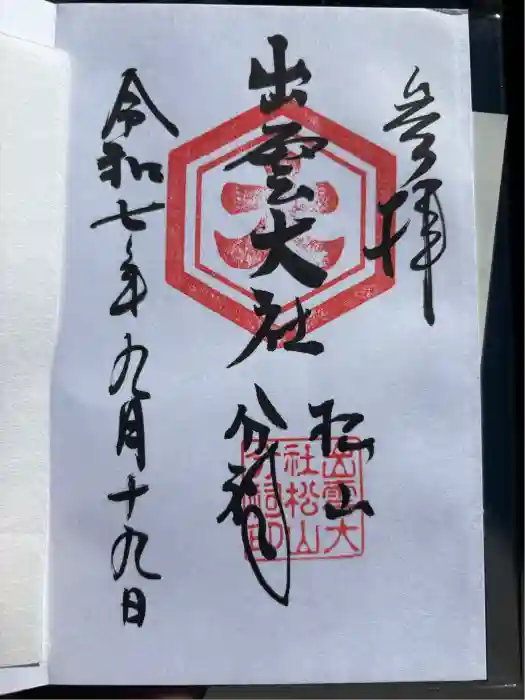 參拜
出雲大社
松山
分祠
令和七年九月十九日
大
出雲大
社松山
分祠印